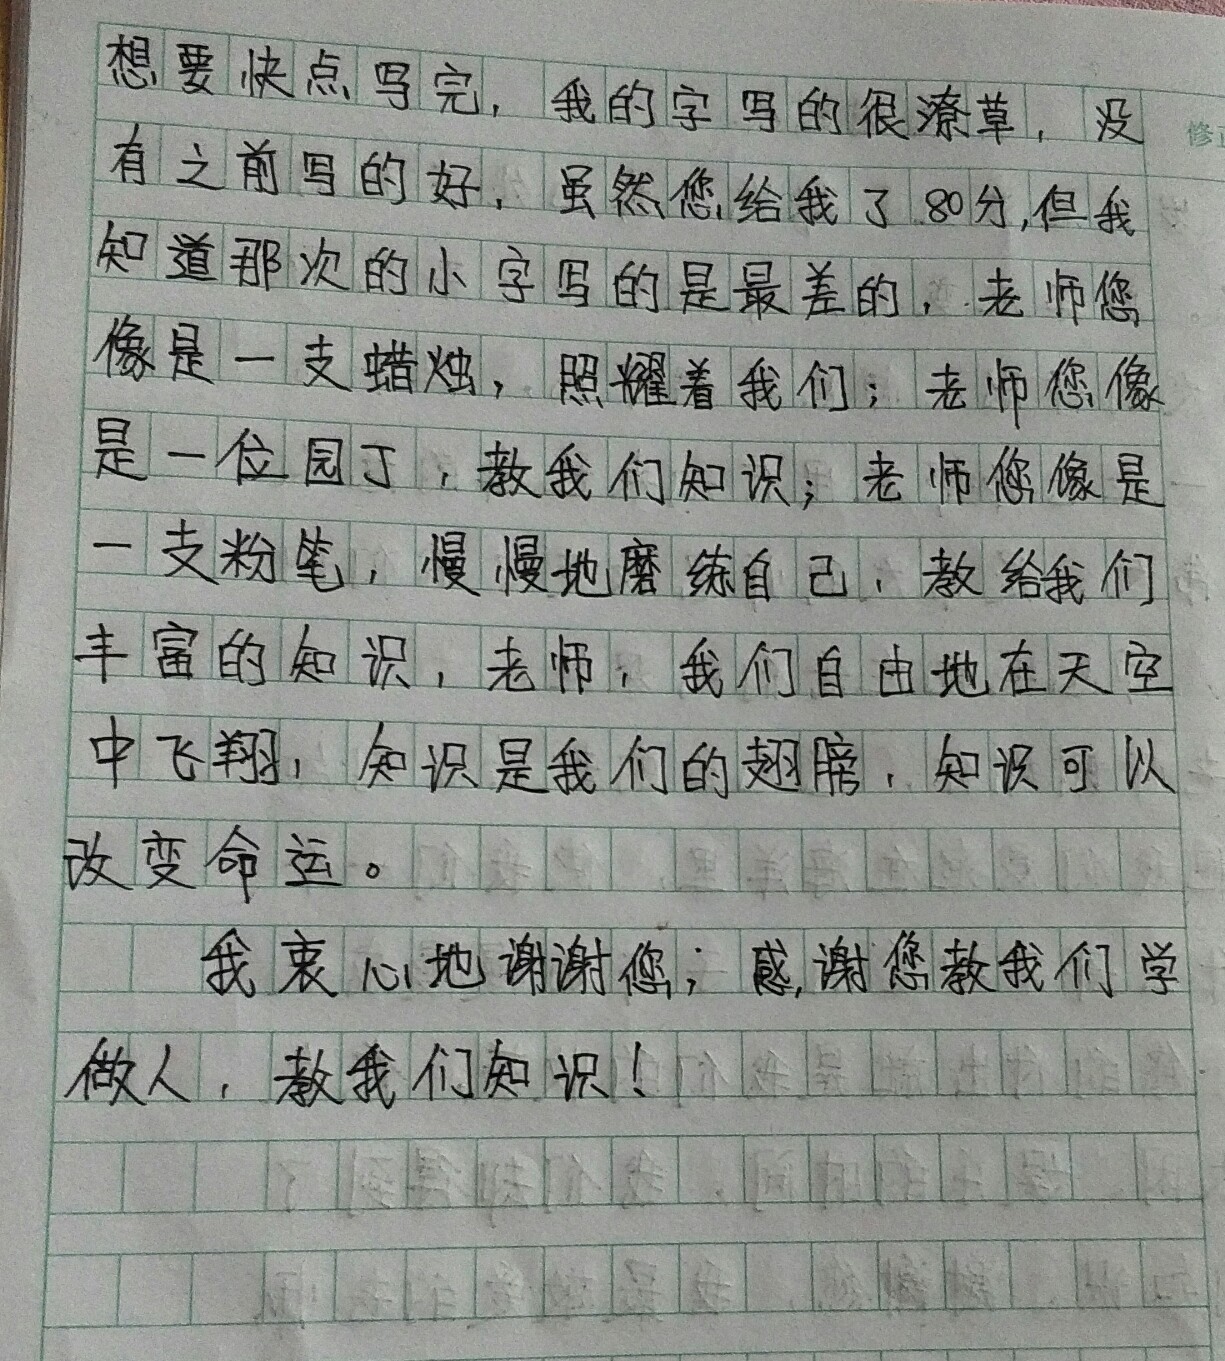 想要快点写完，我的字写的很潦草，没
有之前写的好，虽然您给我了80分，但我
知道那次的小字写的是最差的，老师您
像是一支蜡烛，照耀着我们；老师您像
是一位园丁，教我们知识；老师您像是
一支粉笔，慢慢地磨练自己，教给我们
丰富的知识，老师，我们自由地在天空
中飞翔，知识是我们的翅膀，知识可以
改变命运。
我衷心地谢谢您；感谢您教我们学
做人，教我们知识！